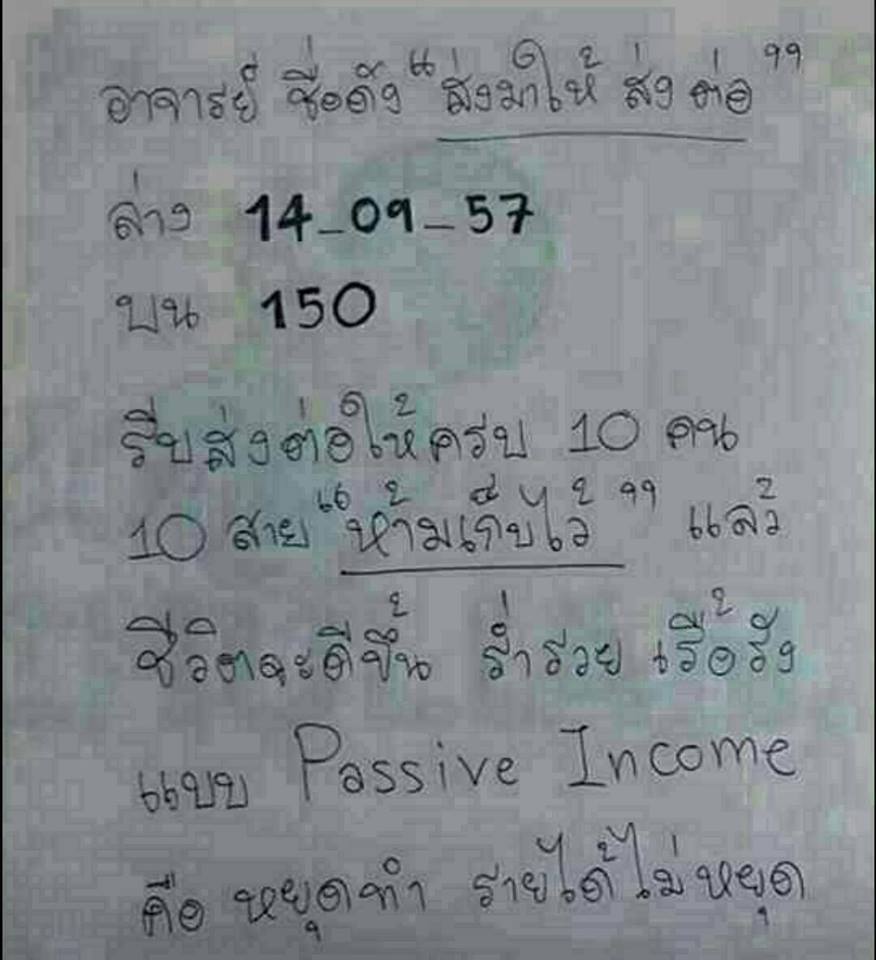 อาจารย์ ชื่อดัง "ส่งมาให้ ส่ง ต่อ"
ล่าง 14-09-57
บน 150
รีบส่งต่อให้ครบ 10 คน
10 สาย "ห้ามเก็บไว้" แล้ว
ชีวิตจะดีขึ้น ร่ำรวย เรื้อรัง
แบบ Passive Income
คือ หยุดทำ รายได้ไม่หยุด